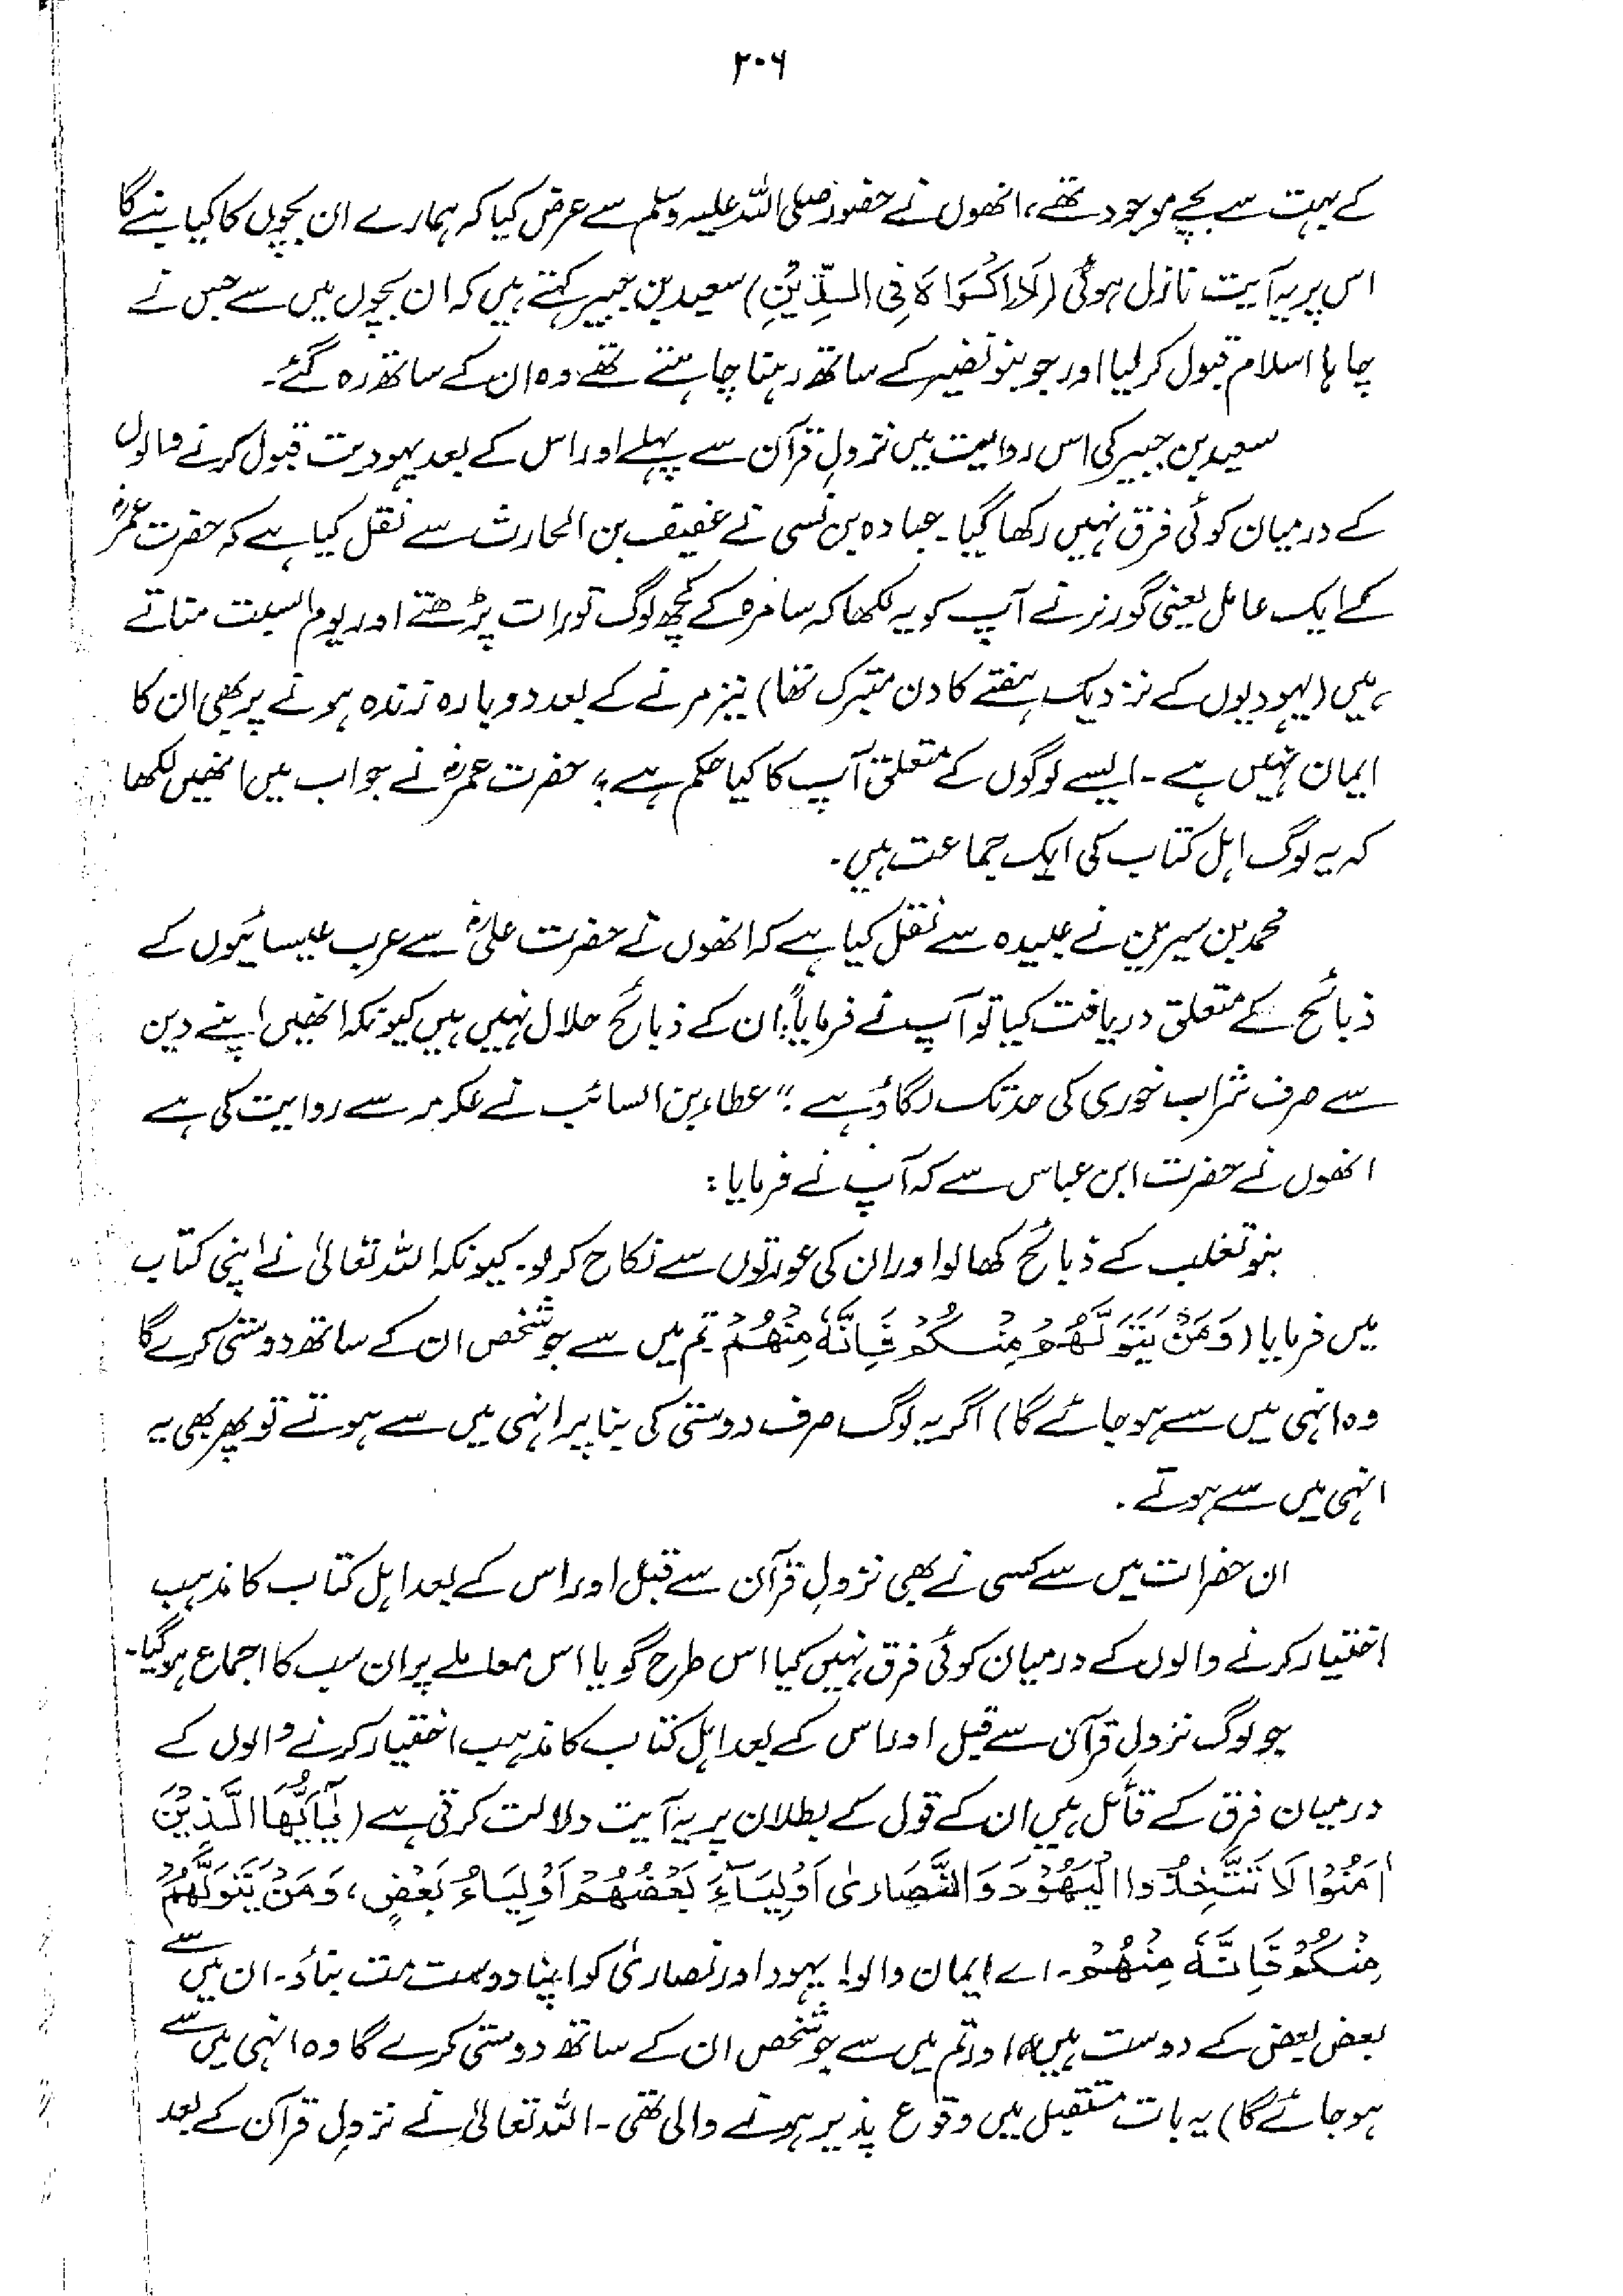 ۲۰۶
کے بہت سے بچے موجود تھے، انھوں نے حضور صلی اللہ علیہ وسلم سے عرض کیا کہ ہمارے ان بچوں کا کیا بنے گا
اس پر یہ آیت نازل ہوئی (لَا اِكْرَاهَ فِی الدِّيْنِ) سعید بن جبیر کہتے ہیں کہ ان بچوں میں سے جس نے
چاہا اسلام قبول کر لیا اور جو بنو نضیر کے ساتھ رہنا چاہتے تھے وہ ان کے ساتھ رہ گئے۔
سعید بن جبیر کی اس روایت میں نزولِ قرآن سے پہلے اور اس کے بعد یہودیت قبول کرنے والوں
کے درمیان کوئی فرق نہیں رکھا گیا۔ عبادہ بن نسی نے غفیف بن الحارث سے نقل کیا ہے کہ حضرت عمرؓ
کے ایک عامل یعنی گورنر نے آپ کو یہ لکھا کہ سامرہ کے کچھ لوگ تورات پڑھتے اور یوم السبت مناتے
ہیں (یہودیوں کے نزدیک ہفتے کا دن متبرک تھا) نیز مرنے کے بعد دوبارہ زندہ ہونے پر بھی ان کا
ایمان نہیں ہے۔ ایسے لوگوں کے متعلق آپ کا کیا حکم ہے؟ حضرت عمرؓ نے جواب میں انھیں لکھا
کہ یہ لوگ اہل کتاب کی ایک جماعت ہیں۔
محمد بن سیرین نے عبیدہ سے نقل کیا ہے کہ انھوں نے حضرت علیؓ سے عرب عیسائیوں کے
ذبائح کے متعلق دریافت کیا تو آپ نے فرمایا: "ان کے ذبائح حلال نہیں ہیں کیونکہ انھیں اپنے دین
سے صرف شراب خوری کی حد تک لگاؤ ہے" عطاء بن السائب نے عکرمہ سے روایت کی ہے
انھوں نے حضرت ابن عباس سے کہ آپ نے فرمایا:
بنو تغلب کے ذبائح کھا لو اور ان کی عورتوں سے نکاح کر لو۔ کیونکہ اللہ تعالیٰ نے اپنی کتاب
میں فرمایا (وَمَنْ يَّتَوَلَّهُمْ مِنْكُمْ فَاِنَّهٗ مِنْهُمْ تم میں سے جو شخص ان کے ساتھ دوستی کرے گا
وہ انہی میں سے ہو جائے گا) اگر یہ لوگ صرف دوستی کی بنا پر انہی میں سے ہوتے تو پھر بھی یہ
انہی میں سے ہوتے۔
ان حضرات میں سے کسی نے بھی نزولِ قرآن سے قبل اور اس کے بعد اہل کتاب کا مذہب
اختیار کرنے والوں کے درمیان کوئی فرق نہیں کیا اس طرح گویا اس معاملے پر ان سب کا اجماع ہو گیا۔
جو لوگ نزولِ قرآن سے قبل اور اس کے بعد اہل کتاب کا مذہب اختیار کرنے والوں کے
درمیان فرق کے قائل ہیں ان کے قول کے بطلان پر یہ آیت دلالت کرتی ہے (يٰٓاَيُّهَا الَّذِيْنَ
اٰمَنُوْا لَا تَتَّخِذُوا الْيَهُوْدَ وَالنَّصَارٰى اَوْلِيَآءَ بَعْضُهُمْ اَوْلِيَاءُ بَعْضٍ، وَمَنْ يَّتَوَلَّهُمْ
مِنْكُمْ فَاِنَّهٗ مِنْهُمْ۔ اے ایمان والو! یہود اور نصاریٰ کو اپنا دوست مت بناؤ۔ ان میں سے
بعض بعض کے دوست ہیں، اور تم میں سے جو شخص ان کے ساتھ دوستی کرے گا وہ انہی میں سے
ہو جائے گا) یہ بات مستقبل میں وقوع پذیر ہونے والی تھی۔ اللہ تعالیٰ نے نزولِ قرآن کے بعد